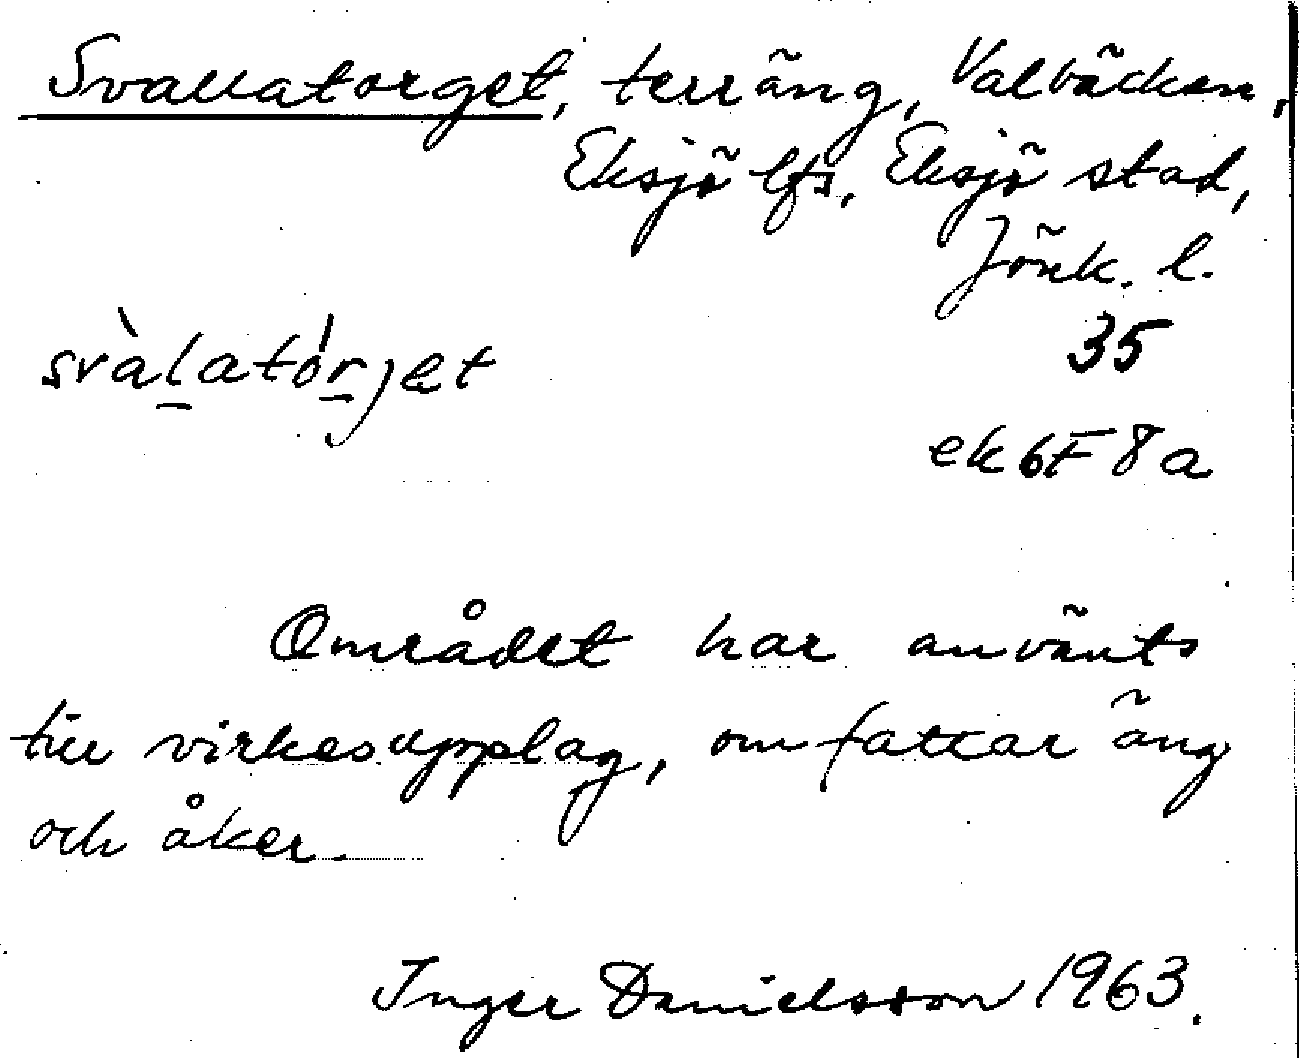 Svallatorget, terräng, Valbäcken,
Eksjö lfs, Eksjö stad,
Jönk. l.
svàl̲atór̲jet
35
ek 6F 8 a
Området har använts
till virkesupplag, omfattar äng
och åker.
Inger Danielsson 1963.